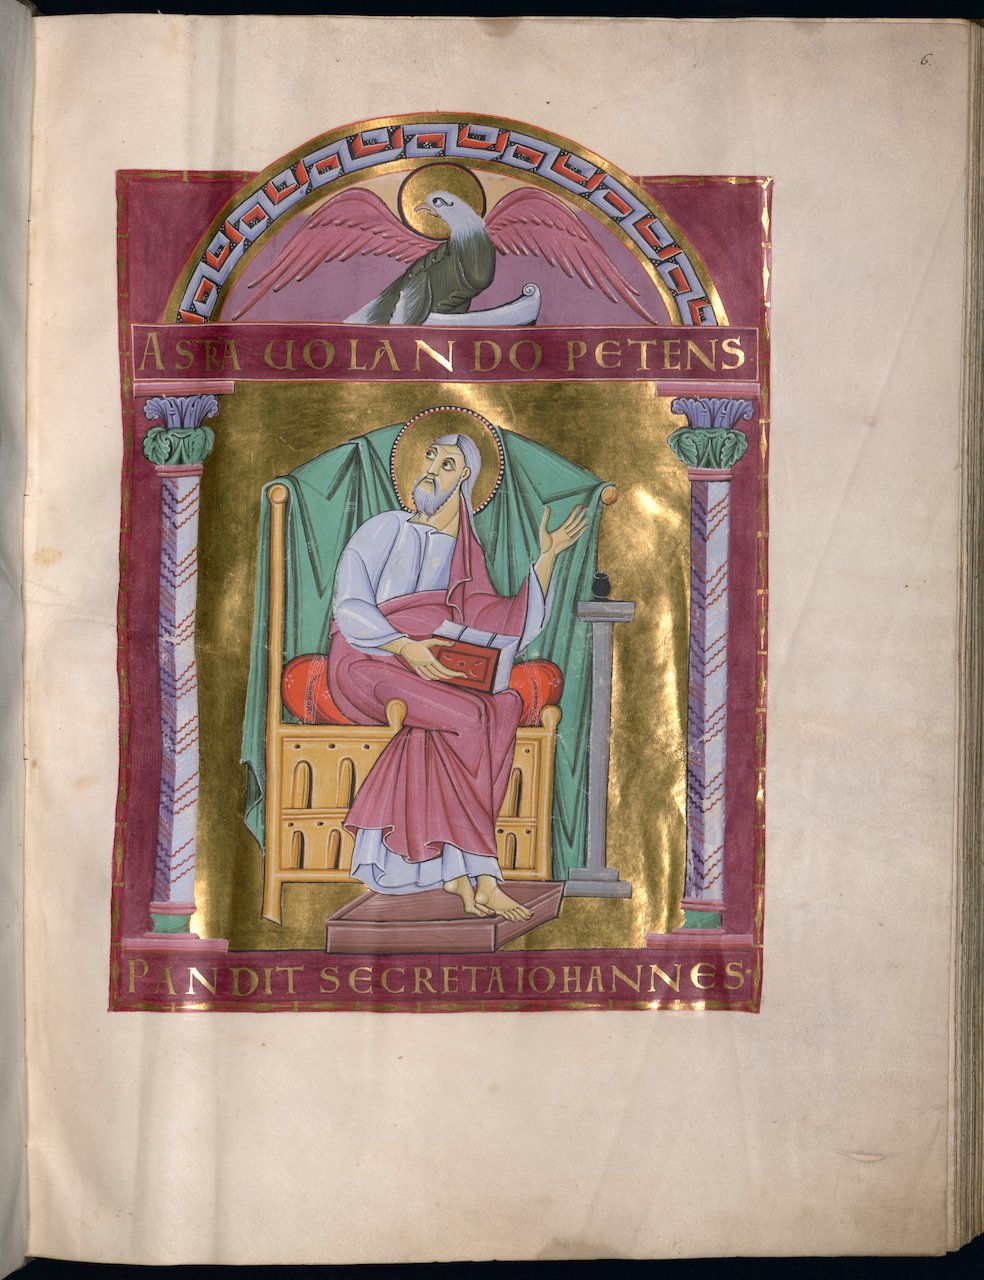 6.
ASTRA UOLANDO PETENS
PANDIT SECRETA IOHANNES·